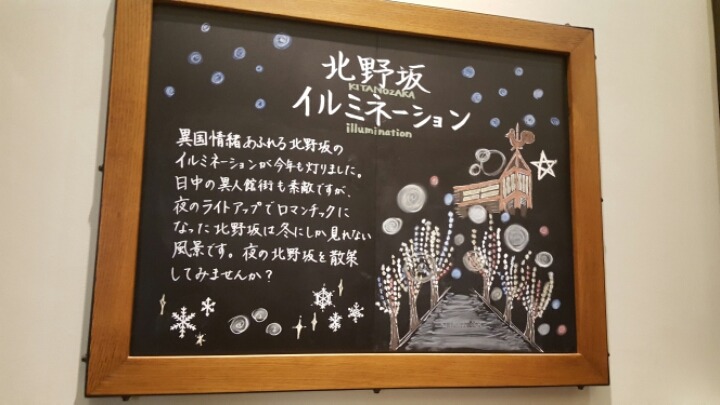 北野坂
KITANOZAKA
イルミネーション
illumination
異国情緒あふれる北野坂の
イルミネーションが今年も灯りました。
日中の異人館街も素敵ですが、
夜のライトアップでロマンチックに
なった北野坂は冬にしか見れない
風景です。夜の北野坂を散策
してみませんか?